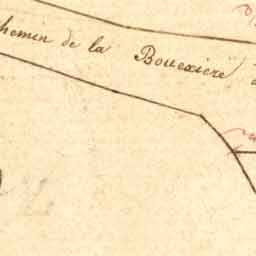 hemin de la Bouexiere